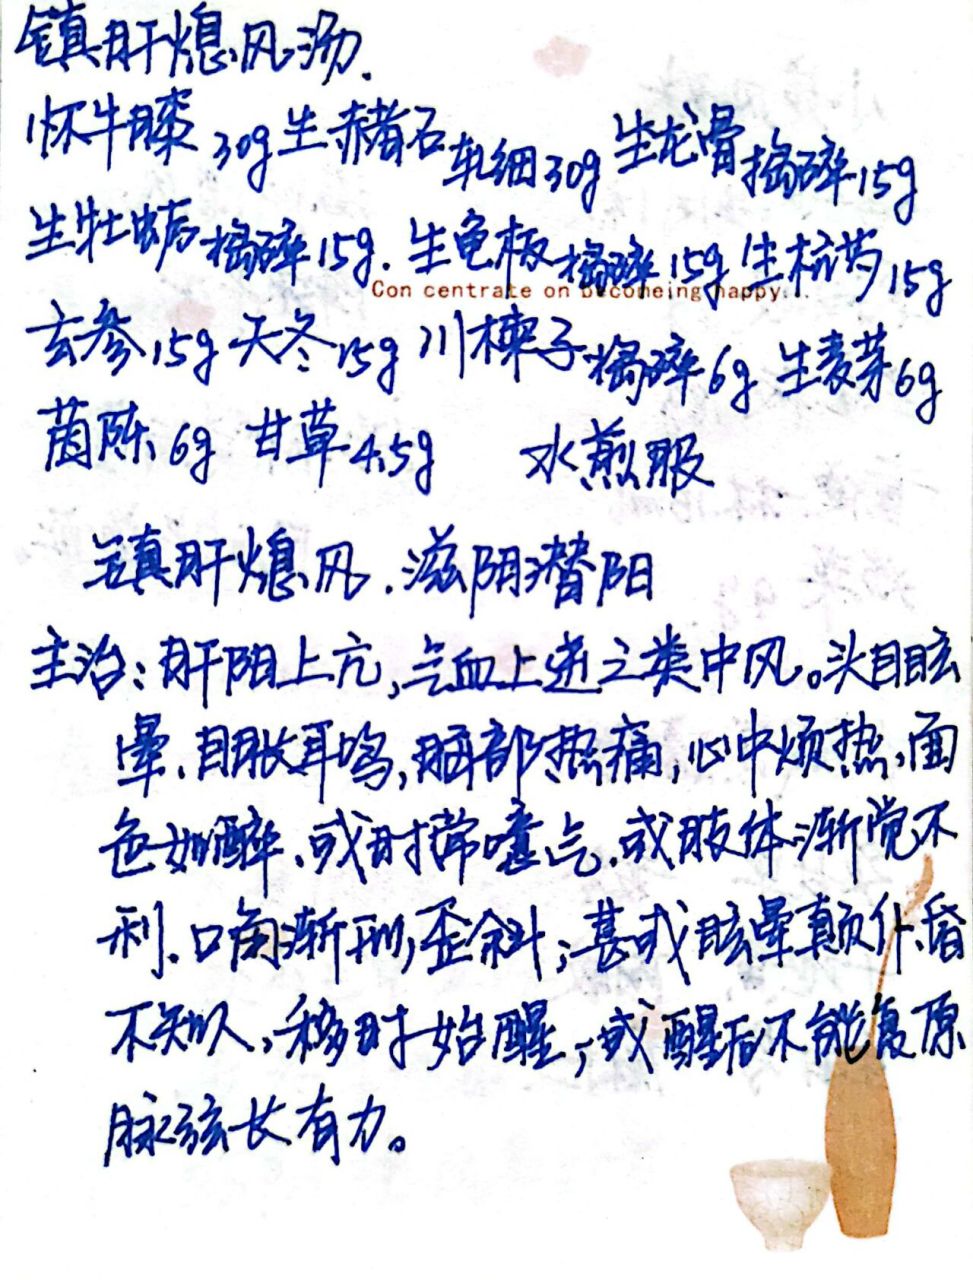 镇肝熄风汤.
怀牛膝30g生赭石轧细30g生龙骨捣碎15g
生牡蛎捣碎15g.生龟板捣碎15g生杭芍15g
Con centrate on becomeing happy...
玄参15g天冬15g川楝子捣碎6g生麦芽6g
茵陈6g 甘草4.5g 水煎服
镇肝熄风.滋阴潜阳
主治:肝阳上亢,气血上逆之类中风。头目眩
晕.目胀耳鸣,脑部热痛,心中烦热,面
色如醉.或时常噫气.或肢体渐觉不
利.口角渐形歪斜;甚或眩晕颠仆.昏
不知人,移时始醒;或醒后不能复原
脉弦长有力。